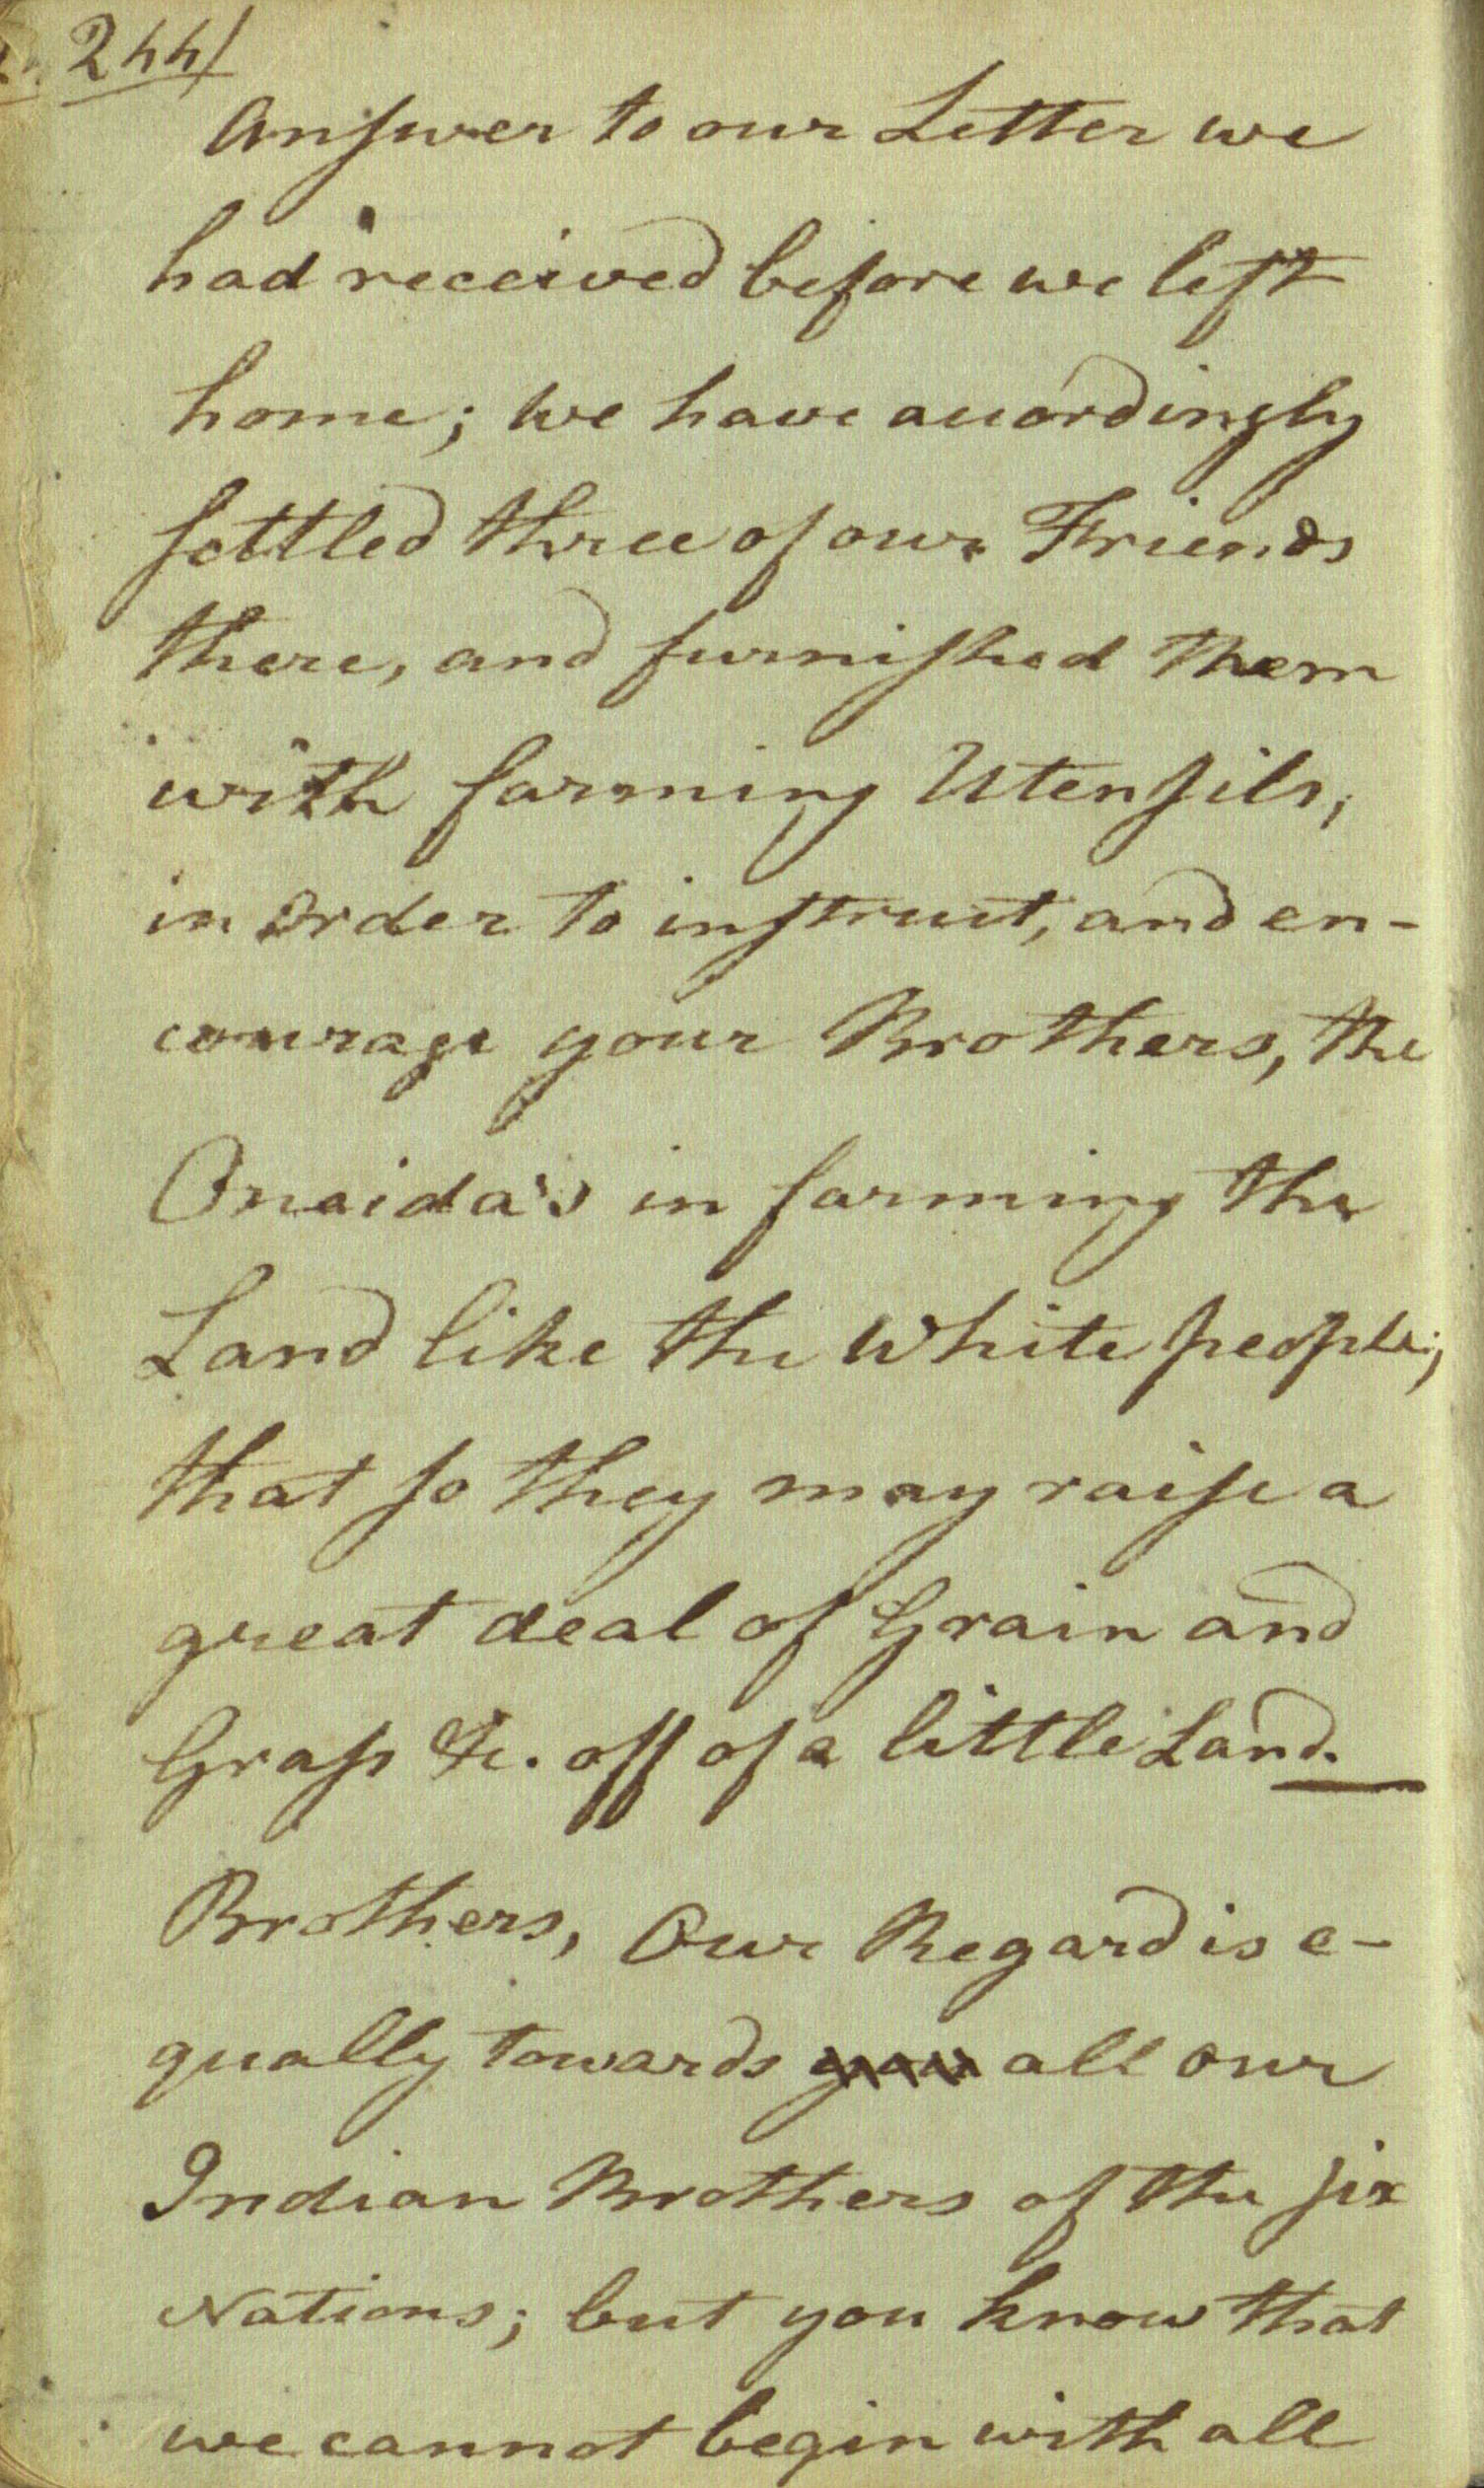 244/
Answer to our Letter we
had received before we left
home; we have accordingly
settled three of our Friends
there, and furnished them
with farming Utensils,
in order to instruct, and en-
courage your Brothers, the
Oneida's in farming the
Land like the White people;
that so they may raise a
great deal of Grain and
Grass &c. off of a little Land.
Brothers, Our Regard is e-
qually towards you all our
Indian Brothers of the six
Nations; but you know that
we cannot begin with all